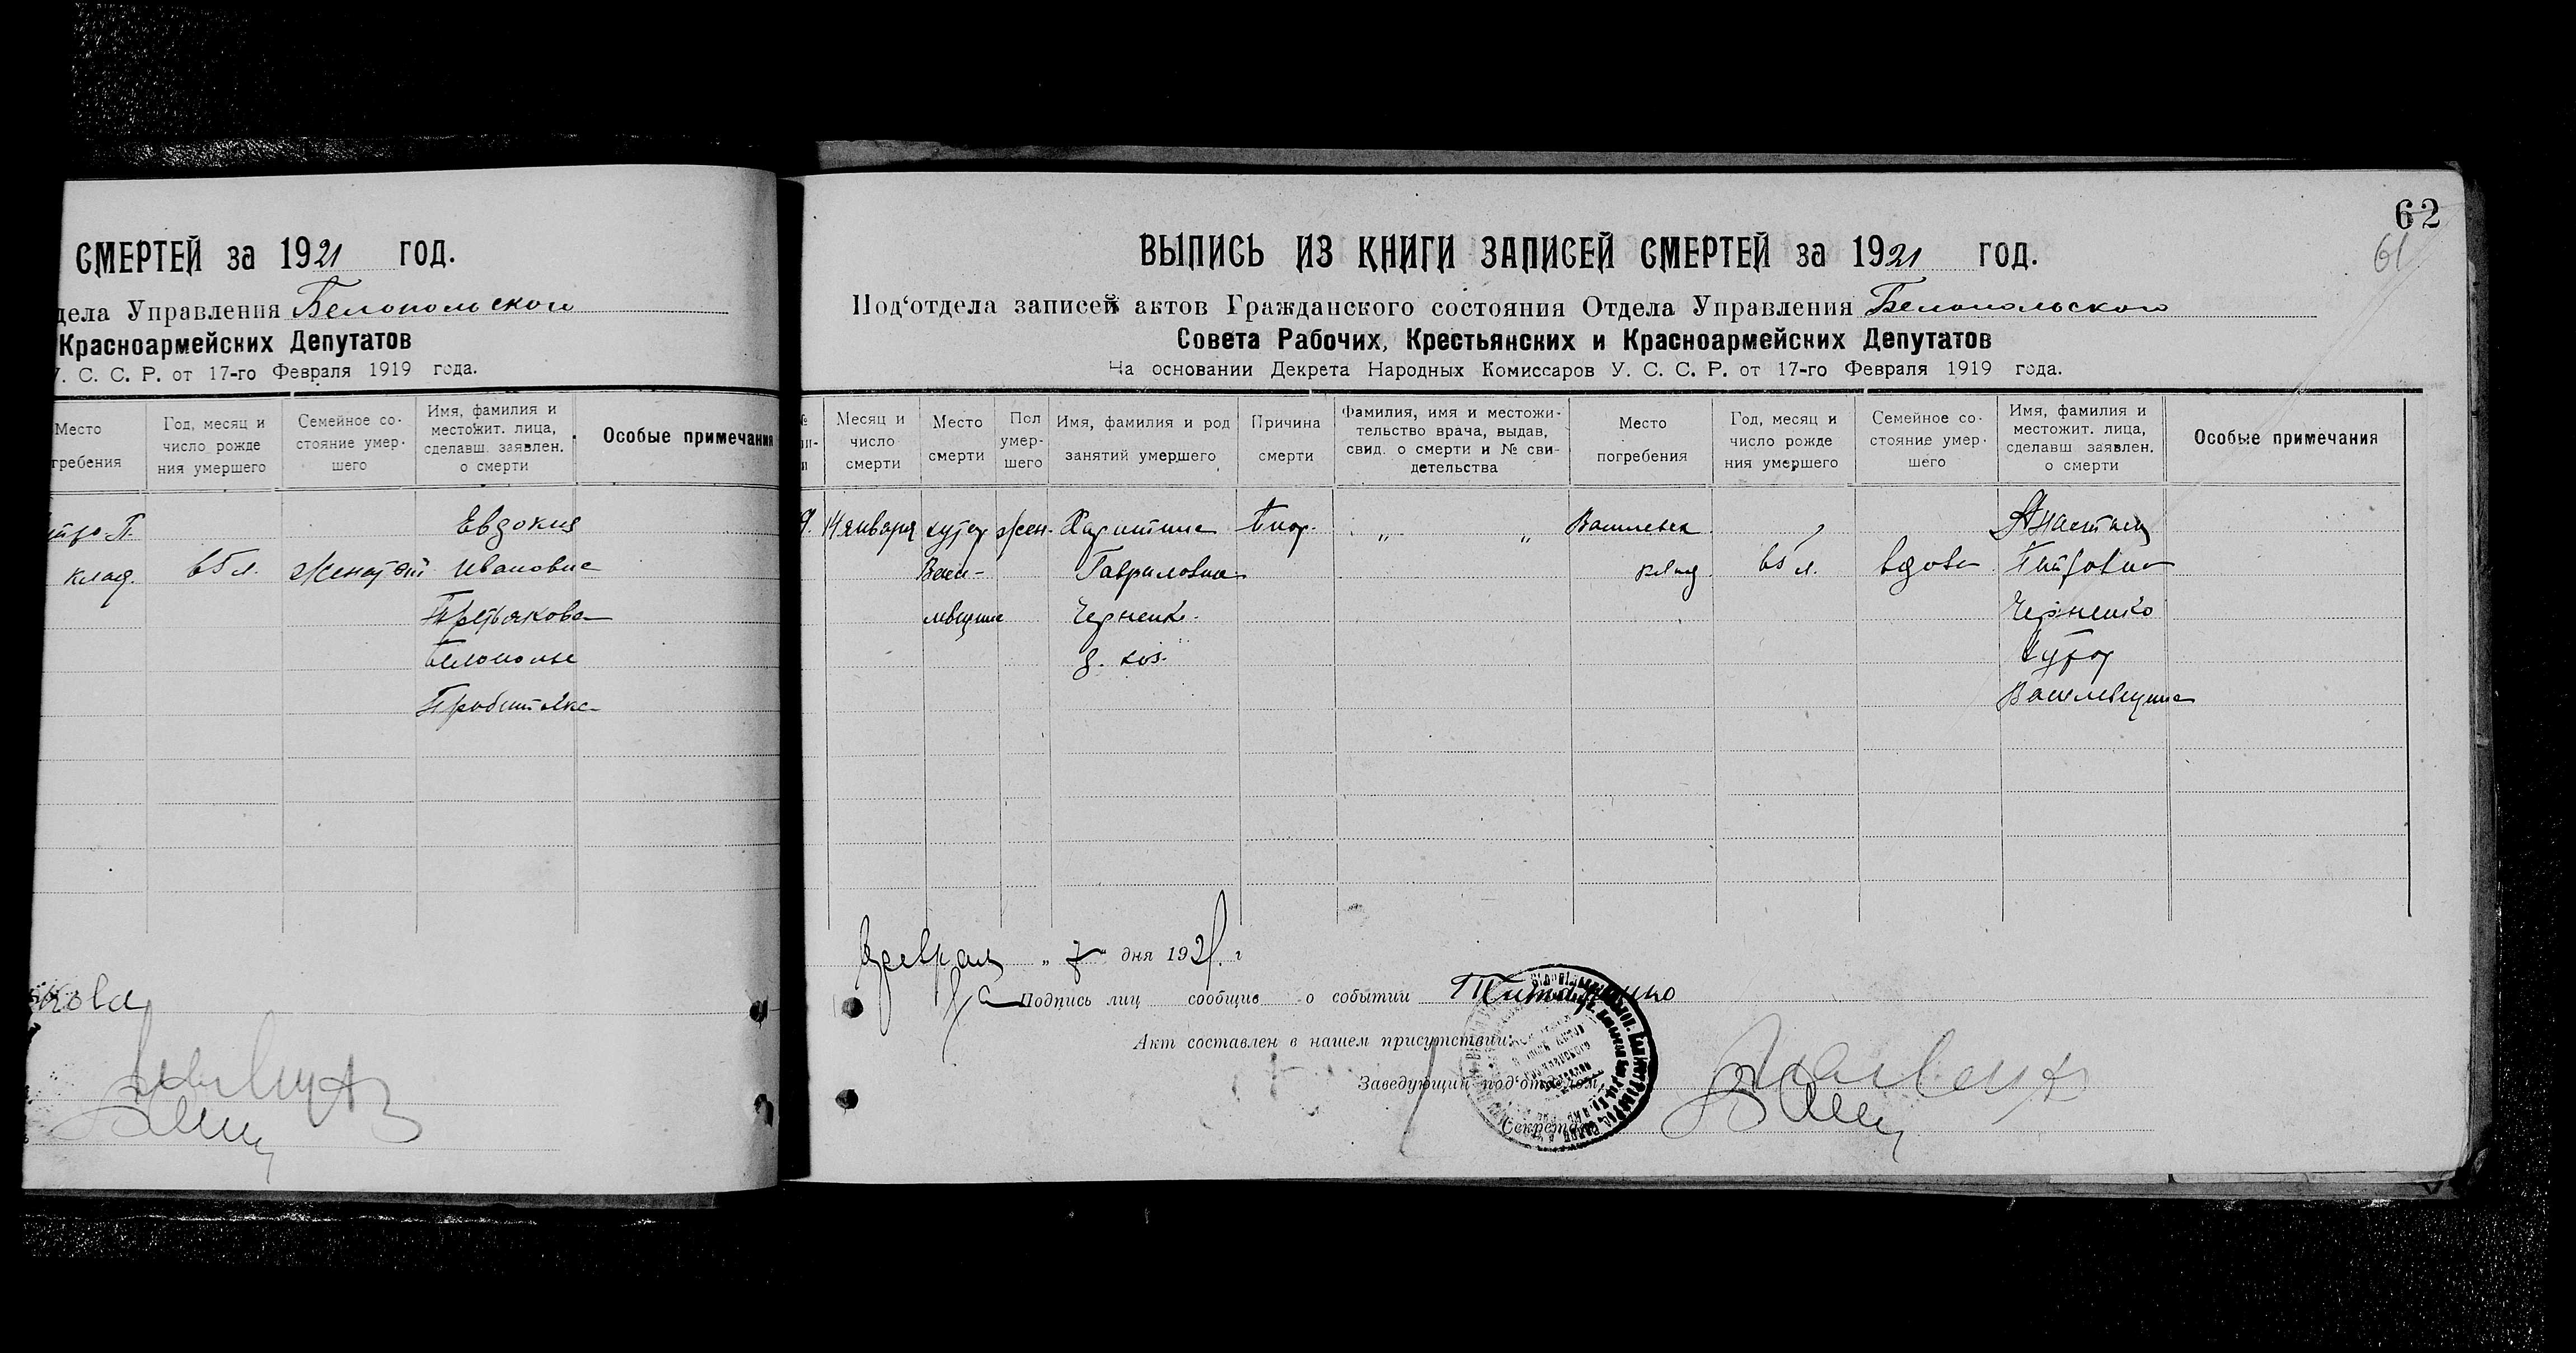 СМЕРТЕЙ за 1921 год.
дела Управления Белопольского
Красноармейских Депутатов
У. С. С. Р. от 17-го Февраля 1919 года.
Место
гребения
Год, месяц и
число рожде
ния умершего
Семейное со-
стояние умер-
шего
Имя, фамилия и
местожит. лица,
сделавш. заявлен.
о смерти
Особые примечания
Евдокия
клад.
65 л.
Женатый
Ивановна
Третьякова
Белополье
кова
62
61
ВЫПИСЬ ИЗ КНИГИ ЗАПИСЕЙ СМЕРТЕЙ за 1921 год.
Под‘отдела записей актов Гражданского состояния Отдела Управления Белопольского
Совета Рабочих, Крестьянских и Красноармейских Депутатов
На основании Декрета Народных Комиссаров У. С. С. Р. от 17-го Февраля 1919 года.
№
Месяц и
число
смерти
Место
смерти
Пол
умер-
шего
Имя, фамилия и род
занятий умершего
Причина
смерти
Фамилия, имя и местожи-
тельство врача, выдав,
свид. о смерти и № сви-
детельства
Место
погребения
Год, месяц и
число рожде
ния умершего
Семейное со-
стояние умер-
шего
Имя, фамилия и
местожит. лица,
сделавш. заявлен.
о смерти
Особые примечания
14 января хутор жен. Харитина „ „ Анастасия
Васи- Гавриловна клад. 65 л. вдова Петровна
левщина Черненко Черненко
д. хоз. Хутор
Василевщина
Февраля „ 7 „ дня 1921 г
Подпись лиц сообщив о событии
Акт составлен в нашем присутствии:
Заведующий под‘отделом
Секретарь